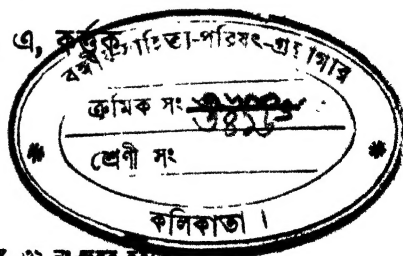 এ, কর্ত্তৃক
বঙ্গীয়-সাহিত্য-পরিষৎ-গ্রন্থাগার
ক্রমিক সং
শ্রেণী সং
কলিকাতা ।